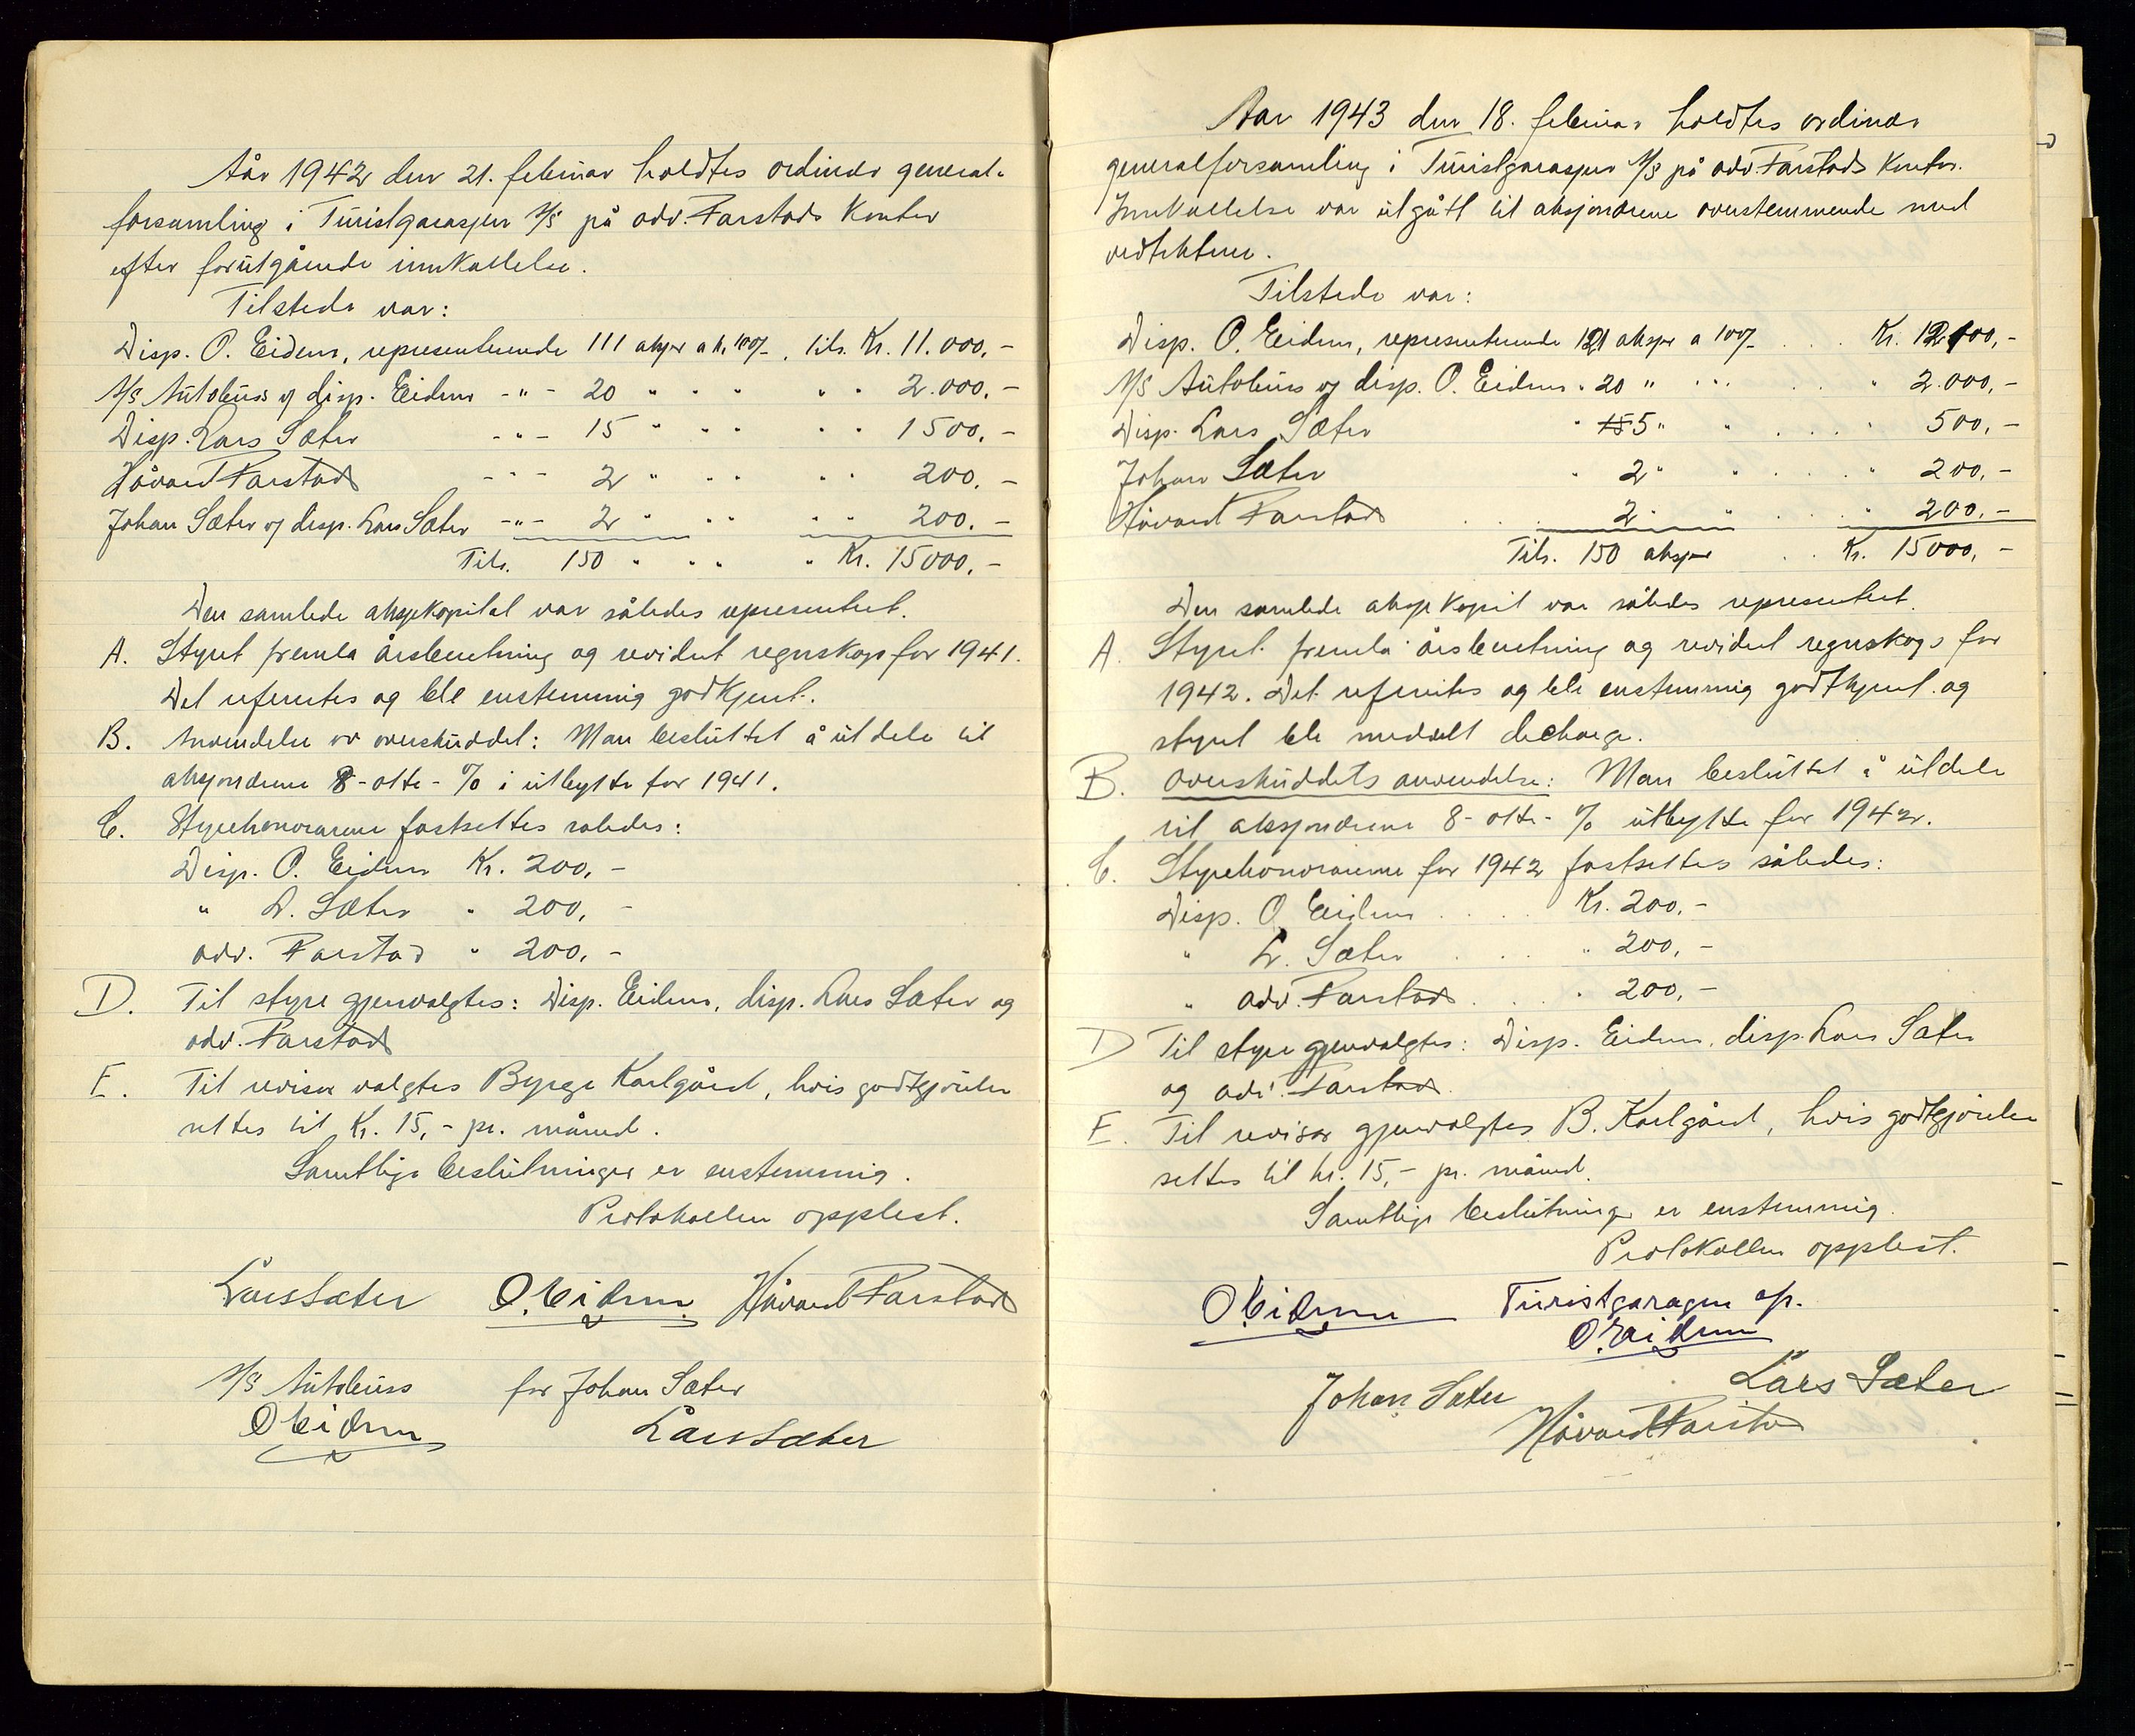 År 1942 den 21. februar holdtes ordinær general-
forsamling i Turistgarasjen A/S på adv. Farstads kontor
efter forutgående innkallelse.
Tilstede var:
Disp. O. Eidem, representerende 111 aksjer a k. 100/- . tils. Kr. 11.000,-
A/S Autobuss v/ disp. Eidem -"- 20 " " " " " 2.000,-
Disp. Lars Sæter -"- 15 " " " " " 1500,-
Håvard Farstad -"- 2 " " " " " 200,-
Johan Sæter v/ disp. Lars Sæter -"- 2 " " " " " 200,-
Tils. 150 " " " " Kr. 15000,-
Den samlede aksjekapital var således representert.
A. Styret fremla årsberetning og revidert regnskap for 1941.
Det refertes og ble enstemmig godkjent.
B. Anvendelse av overskuddet: Man besluttet å utdele til
aksjonærene 8 - otte - % i utbytte for 1941.
C. Styrehonorarene fastsettes således:
Disp. O. Eidem Kr. 200,-
" L. Sæter " 200,-
adv. Farstad " 200,-
D. Til styre gjenvalgtes: Disp. Eidem, disp. Lars Sæter og
adv. Farstad
E. Til revisor valgtes Byrge Karlgård, hvis godtgjørelse
settes til Kr. 15,- pr. måned.
Samtlige beslutninger er enstemmig.
Protokollen opplest.
Lars Sæter O. Eidem Håvard Farstad
A/S Autobuss for Johan Sæter
O Eidem Lars Sæter
Aar 1943 den 18. februar holdtes ordinær
generalforsamling i Turistgarasjen A/S på adv. Farstads kontor.
Innkallelse var utgått til aksjonærene overstemmende med
vedtektene.
Tilstede var:
Disp. O. Eidem, representerende 121 aksjer a 100/- . . . Kr. 12100,-
A/S Autobuss v/ disp. O. Eidem " 20 " " " " . . " 2.000,-
Disp. Lars Sæter " 15 5 " " . . . . " 500,-
Johan Sæter " 2 " " . . . . " 200,-
Håvard Farstad . . . 2 " " . . . " 200,-
Tils. 150 aksjer . . Kr. 15000,-
Den samlede aksjekapit var således representert.
A. Styret fremla årsberetning og revidert regnskap for
1942. Det refertes og ble enstemmig godkjent og
styret ble meddelt decharge.
B. Overskuddets anvendelse: Man besluttet å utdele
til aksjonærene 8 - otte - % utbytte for 1942.
C. Styrehonorarene for 1942 fastsettes således:
Disp. O Eidem . . . . Kr. 200,-
" L. Sæter . . . . " 200,-
" adv. Farstad . . . . " 200,-
D Til styre gjenvalgtes: Disp. Eidem, disp. Lars Sæter
og adv. Farstad.
E. Til revisor gjenvalgtes B. Karlgård, hvis godtgjørelse
settes til kr. 15,- pr. måned.
Samtlige beslutninger er enstemmig.
Protokollen opplest.
O Eidem Turistgaragen
O. Eidem
Johan Sæter Lars Sæter
Håvard Farstad